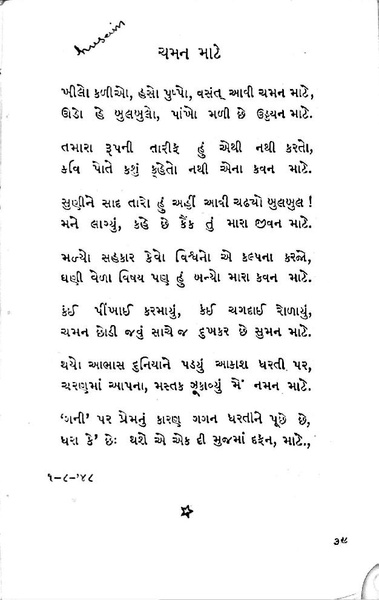 husain
ચમન માટે
ખીલો કળીઓ, હસો પુષ્પો, વસંત્ આવી ચમન માટે,
ઊડો હે બુલબુલો, પાંખો મળી છે ઉડ્ડયન માટે.
તમારા રૂપની તારીફ હું એથી નથી કરતો,
કવિ પોતે કશું કહેતો નથી એના કવન માટે.
સુણીને સાદ તારો હું અહીં આવી ચઢ્યો બુલબુલ !
મને લાગ્યું, કહે છે કૈંક તું મારા જીવન માટે.
મળ્યો સહકાર કેવો વિશ્વનો એ કલ્પના કરજો,
ઘણી વેળા વિષય પણ હું બન્યો મારા કવન માટે.
કંઈ પીંખાઈ કરમાયું, કંઈ ચગદાઈ રોળાયું,
ચમન છોડી જવું સાચે જ દુખકર છે સુમન માટે.
થયો આભાસ દુનિયાને પડ્યું આકાશ ધરતી પર,
ચરણમાં આપના, મસ્તક ઝૂકાવ્યું મેં નમન માટે.
‘ગની’ પર પ્રેમનું કારણ ગગન ધરતીને પૂછે છે,
ધરા કે’ છેઃ થશે એ એક દી મુજમાં દફન, માટે.,
૧-૮-’૪૮
૩૯